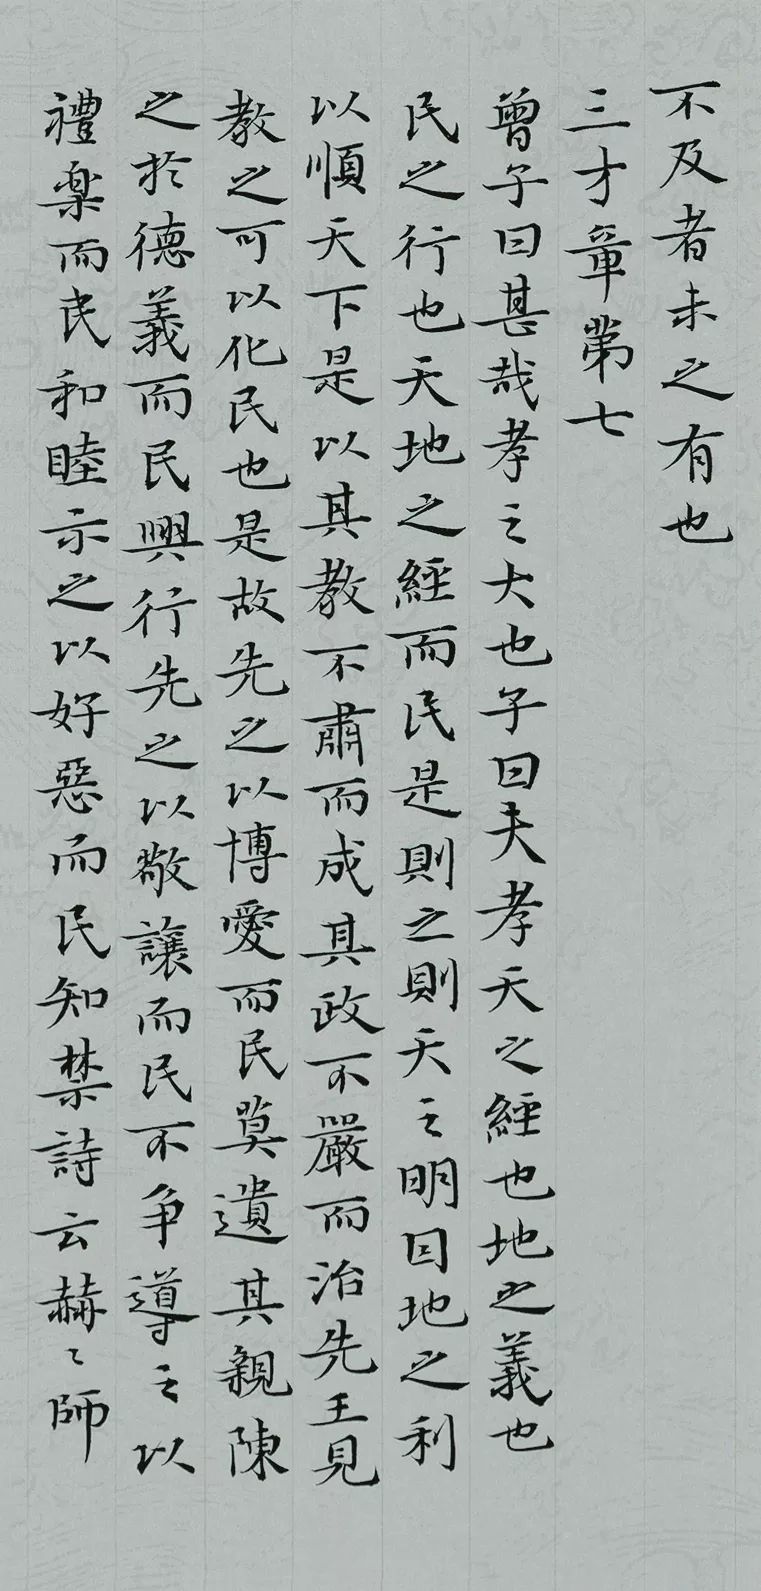 不及者未之有也
三才章第七
曾子曰甚哉孝之大也子曰夫孝天之經也地之義也
民之行也天地之經而民是則之則天之明因地之利
以順天下是以其教不肅而成其政不嚴而治先王見
教之可以化民也是故先之以博愛而民莫遺其親陳
之於德義而民興行先之以敬讓而民不争導之以
禮楽而民和睦示之以好惡而民知禁詩云赫〻師